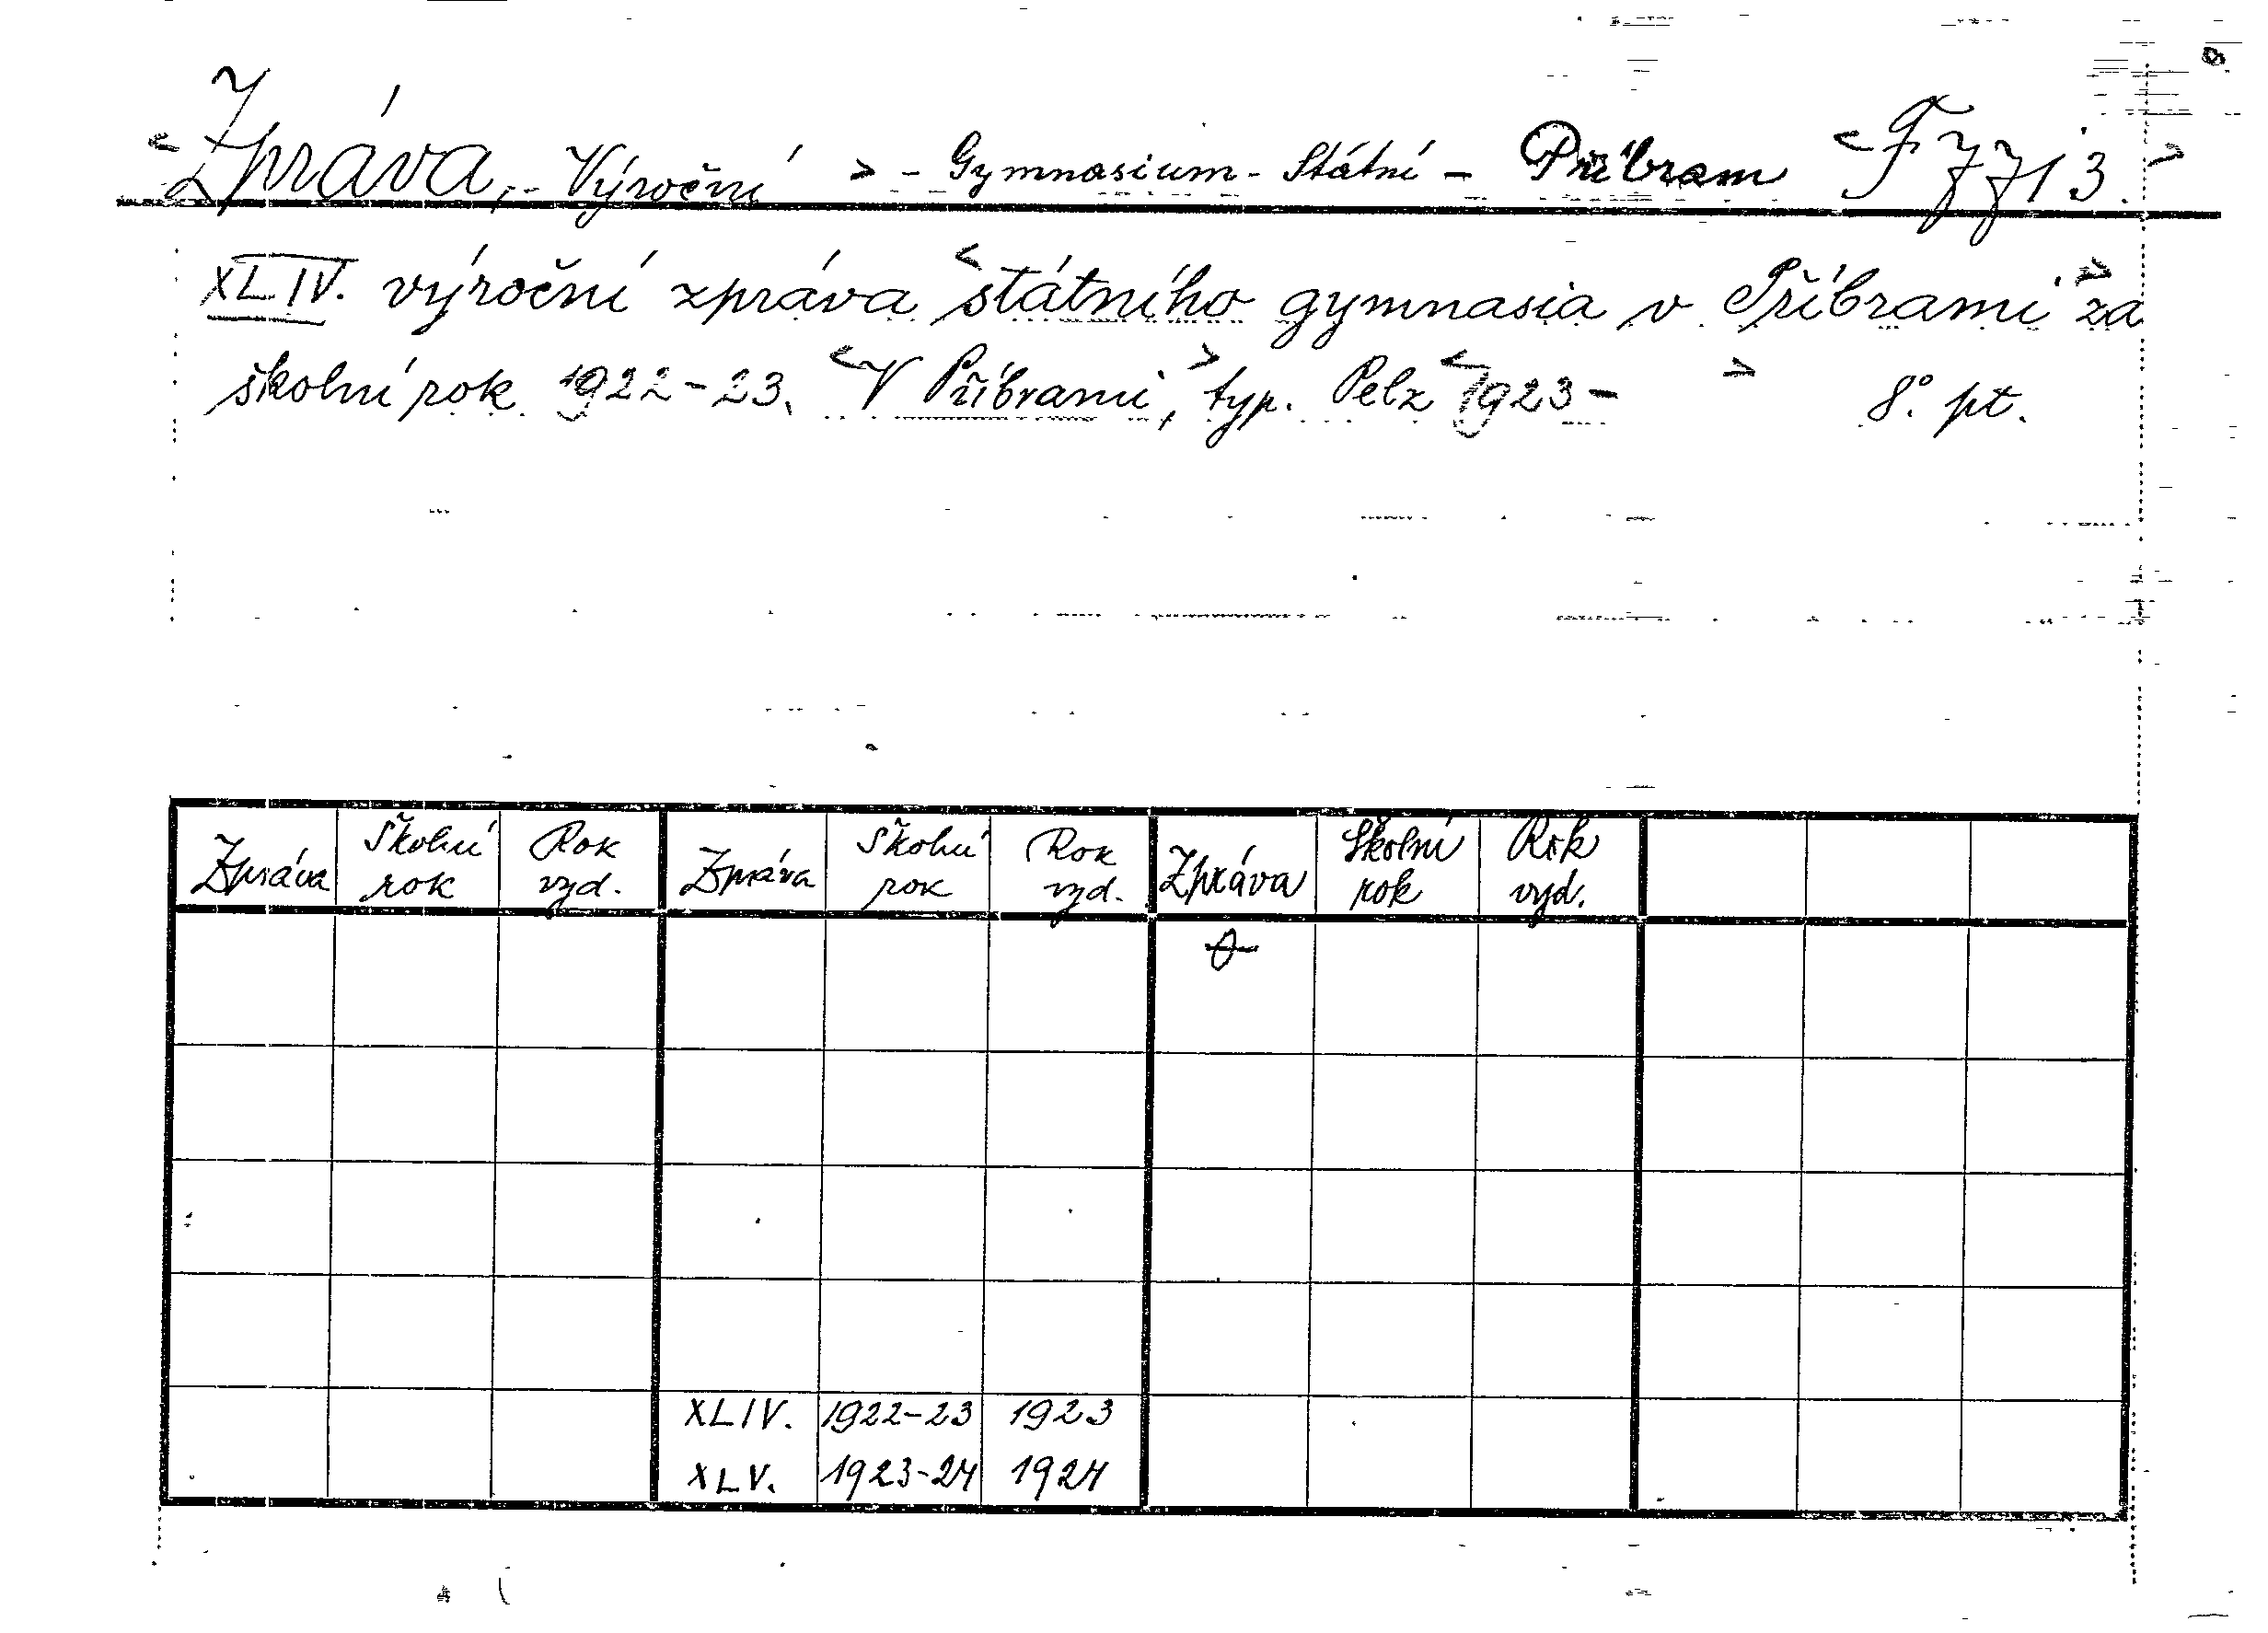 <Zpráva, Výroční > - Gymnasium - Státní - Příbram <F 7713.>
XLIV. výroční zpráva <státního gymnasia v Příbrami> za
školní rok 1922-23. <V Příbrami,> typ. Pelz <1923- > 8° pt.
Zpráva Školní rok Rok vyd. Zpráva Školní rok Rok vyd. Zpráva Školní rok Rok vyd.
XLIV. 1922-23 1923
XLV. 1923-24 1924